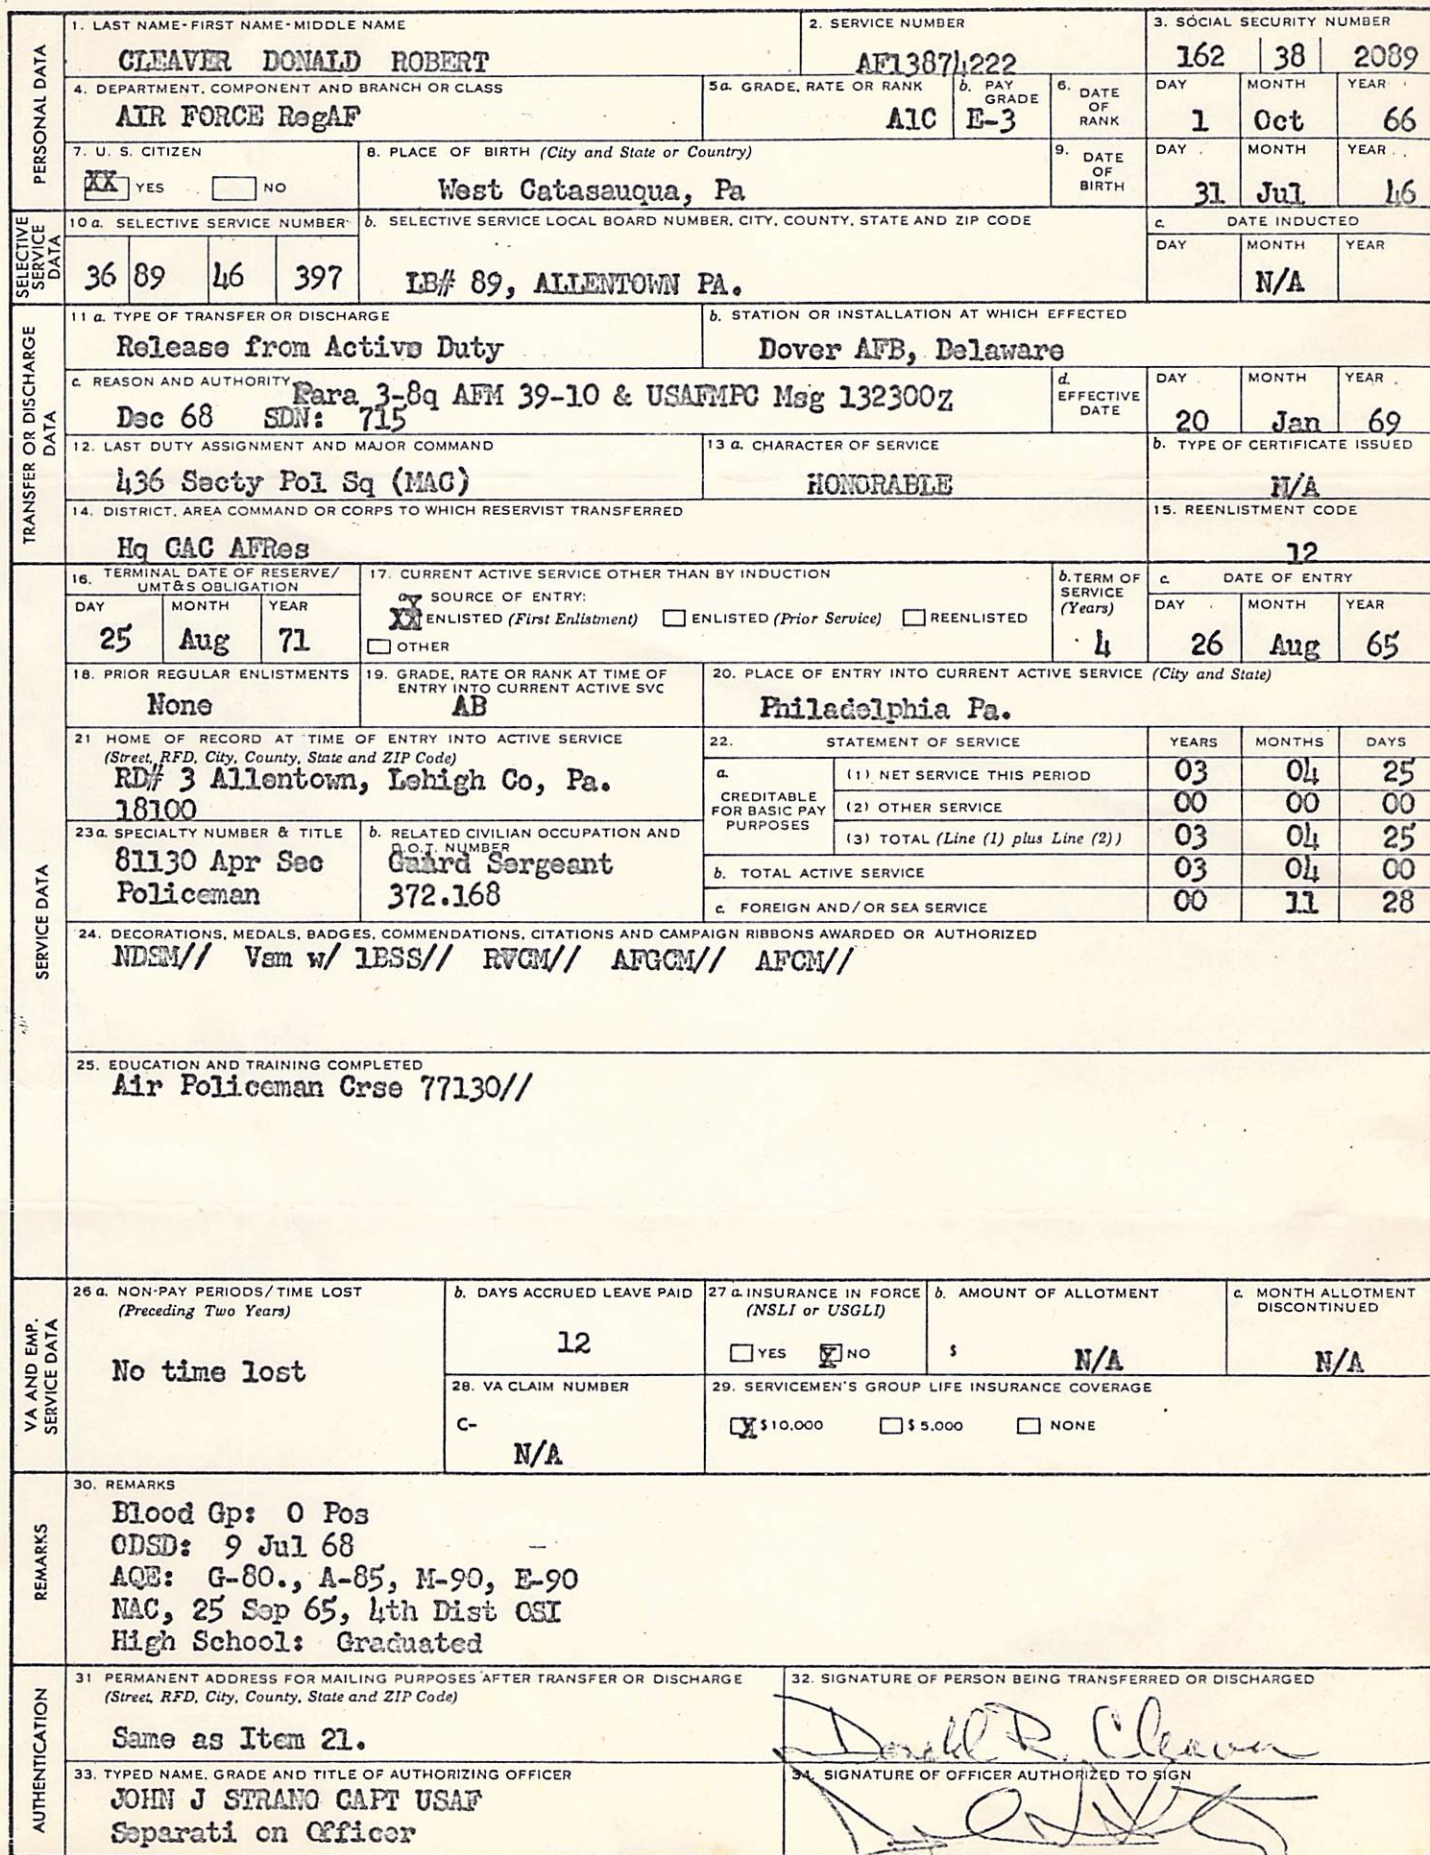 PERSONAL DATA
1. LAST NAME-FIRST NAME-MIDDLE NAME
CLEAVER DONALD ROBERT
2. SERVICE NUMBER
AF13874222
3. SOCIAL SECURITY NUMBER
162 38 2089
4. DEPARTMENT, COMPONENT AND BRANCH OR CLASS
AIR FORCE RegAF
5a. GRADE, RATE OR RANK
A1C
b. PAY GRADE
E-3
6. DATE OF RANK
DAY MONTH YEAR
1 Oct 66
7. U. S. CITIZEN
XX YES NO
8. PLACE OF BIRTH (City and State or Country)
West Catasauqua, Pa
9. DATE OF BIRTH
DAY MONTH YEAR
31 Jul 46
SELECTIVE SERVICE DATA
10 a. SELECTIVE SERVICE NUMBER
36 89 46 397
b. SELECTIVE SERVICE LOCAL BOARD NUMBER, CITY, COUNTY, STATE AND ZIP CODE
LB# 89, ALLENTOWN PA.
c. DATE INDUCTED
DAY MONTH YEAR
N/A
TRANSFER OR DISCHARGE DATA
11 a. TYPE OF TRANSFER OR DISCHARGE
Release from Active Duty
b. STATION OR INSTALLATION AT WHICH EFFECTED
Dover AFB, Delaware
c. REASON AND AUTHORITY
Para 3-8q AFM 39-10 & USAFMPC Msg 132300Z
Dec 68 SDN: 715
d. EFFECTIVE DATE
DAY MONTH YEAR
20 Jan 69
12. LAST DUTY ASSIGNMENT AND MAJOR COMMAND
436 Secty Pol Sq (MAC)
13 a. CHARACTER OF SERVICE
HONORABLE
b. TYPE OF CERTIFICATE ISSUED
N/A
14. DISTRICT, AREA COMMAND OR CORPS TO WHICH RESERVIST TRANSFERRED
Hq CAC AFRes
15. REENLISTMENT CODE
12
SERVICE DATA
16. TERMINAL DATE OF RESERVE/ UMT&S OBLIGATION
DAY MONTH YEAR
25 Aug 71
17. CURRENT ACTIVE SERVICE OTHER THAN BY INDUCTION
a. SOURCE OF ENTRY:
XX ENLISTED (First Enlistment) ENLISTED (Prior Service) REENLISTED
OTHER
b. TERM OF SERVICE (Years)
4
c. DATE OF ENTRY
DAY MONTH YEAR
26 Aug 65
18. PRIOR REGULAR ENLISTMENTS
None
19. GRADE, RATE OR RANK AT TIME OF ENTRY INTO CURRENT ACTIVE SVC
AB
20. PLACE OF ENTRY INTO CURRENT ACTIVE SERVICE (City and State)
Philadelphia Pa.
21 HOME OF RECORD AT TIME OF ENTRY INTO ACTIVE SERVICE
(Street, RFD, City, County, State and ZIP Code)
RD# 3 Allentown, Lehigh Co, Pa.
18100
22. STATEMENT OF SERVICE YEARS MONTHS DAYS
a. CREDITABLE FOR BASIC PAY PURPOSES
(1) NET SERVICE THIS PERIOD 03 04 25
(2) OTHER SERVICE 00 00 00
(3) TOTAL (Line (1) plus Line (2)) 03 04 25
b. TOTAL ACTIVE SERVICE 03 04 00
c. FOREIGN AND/OR SEA SERVICE 00 11 28
23a. SPECIALTY NUMBER & TITLE
81130 Apr Sec
Policeman
b. RELATED CIVILIAN OCCUPATION AND D.O.T. NUMBER
Guard Sergeant
372.168
24. DECORATIONS, MEDALS, BADGES, COMMENDATIONS, CITATIONS AND CAMPAIGN RIBBONS AWARDED OR AUTHORIZED
NDSM// Vsm w/ 1BSS// RVCM// AFGCM// AFCM//
25. EDUCATION AND TRAINING COMPLETED
Air Policeman Crse 77130//
VA AND EMP. SERVICE DATA
26 a. NON-PAY PERIODS/TIME LOST
(Preceding Two Years)
No time lost
b. DAYS ACCRUED LEAVE PAID
12
27 a. INSURANCE IN FORCE
(NSLI or USGLI)
YES X NO
b. AMOUNT OF ALLOTMENT
$ N/A
c. MONTH ALLOTMENT DISCONTINUED
N/A
28. VA CLAIM NUMBER
C-
N/A
29. SERVICEMEN'S GROUP LIFE INSURANCE COVERAGE
X $10,000 $5,000 NONE
REMARKS
30. REMARKS
Blood Gp: O Pos
ODSD: 9 Jul 68
AQE: G-80., A-85, M-90, E-90
NAC, 25 Sep 65, 4th Dist OSI
High School: Graduated
AUTHENTICATION
31 PERMANENT ADDRESS FOR MAILING PURPOSES AFTER TRANSFER OR DISCHARGE
(Street, RFD, City, County, State and ZIP Code)
Same as Item 21.
32. SIGNATURE OF PERSON BEING TRANSFERRED OR DISCHARGED
Donald R. Cleaver
33. TYPED NAME, GRADE AND TITLE OF AUTHORIZING OFFICER
JOHN J STRANO CAPT USAF
Separati on Officer
34. SIGNATURE OF OFFICER AUTHORIZED TO SIGN